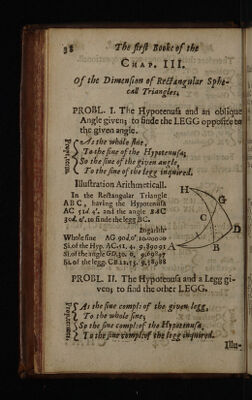 38 The first Booke of the
CHAP. III.
Of the Dimension of Rectangular Sphe-
call Triangles.
PROBL. I. The Hypotenusa and an oblique
Angle given; to finde the LEGG opposite to
the given angle.
As the whole sine,
To the sine of the Hypotenusa;
So the sine of the given angle,
To the sine of the legg inquired.
Illustration Arithmeticall.
In the Rectangular Triangle
ABC, having the Hypotenusa
AC 51d 4'. and the angle BAC
30d. 0'. to finde the legg BC.
Logarith
Whole sine AG 90d.0' 10.00000
Si.of the Hyp. AC.51. 4.
Si.of the angle GD.30. 0. 9.69897
Si. of the legg. CB.
H
G
C
A B D
PROBL. II. The Hypotenusa and a Legg gi-
ven; to find the other LEGG.
As the sine compl: of the given legg,
To the whole sine;
So the sine compl: of the Hypotenusa,
To the sine compl: of the legg inquired.
Illu-